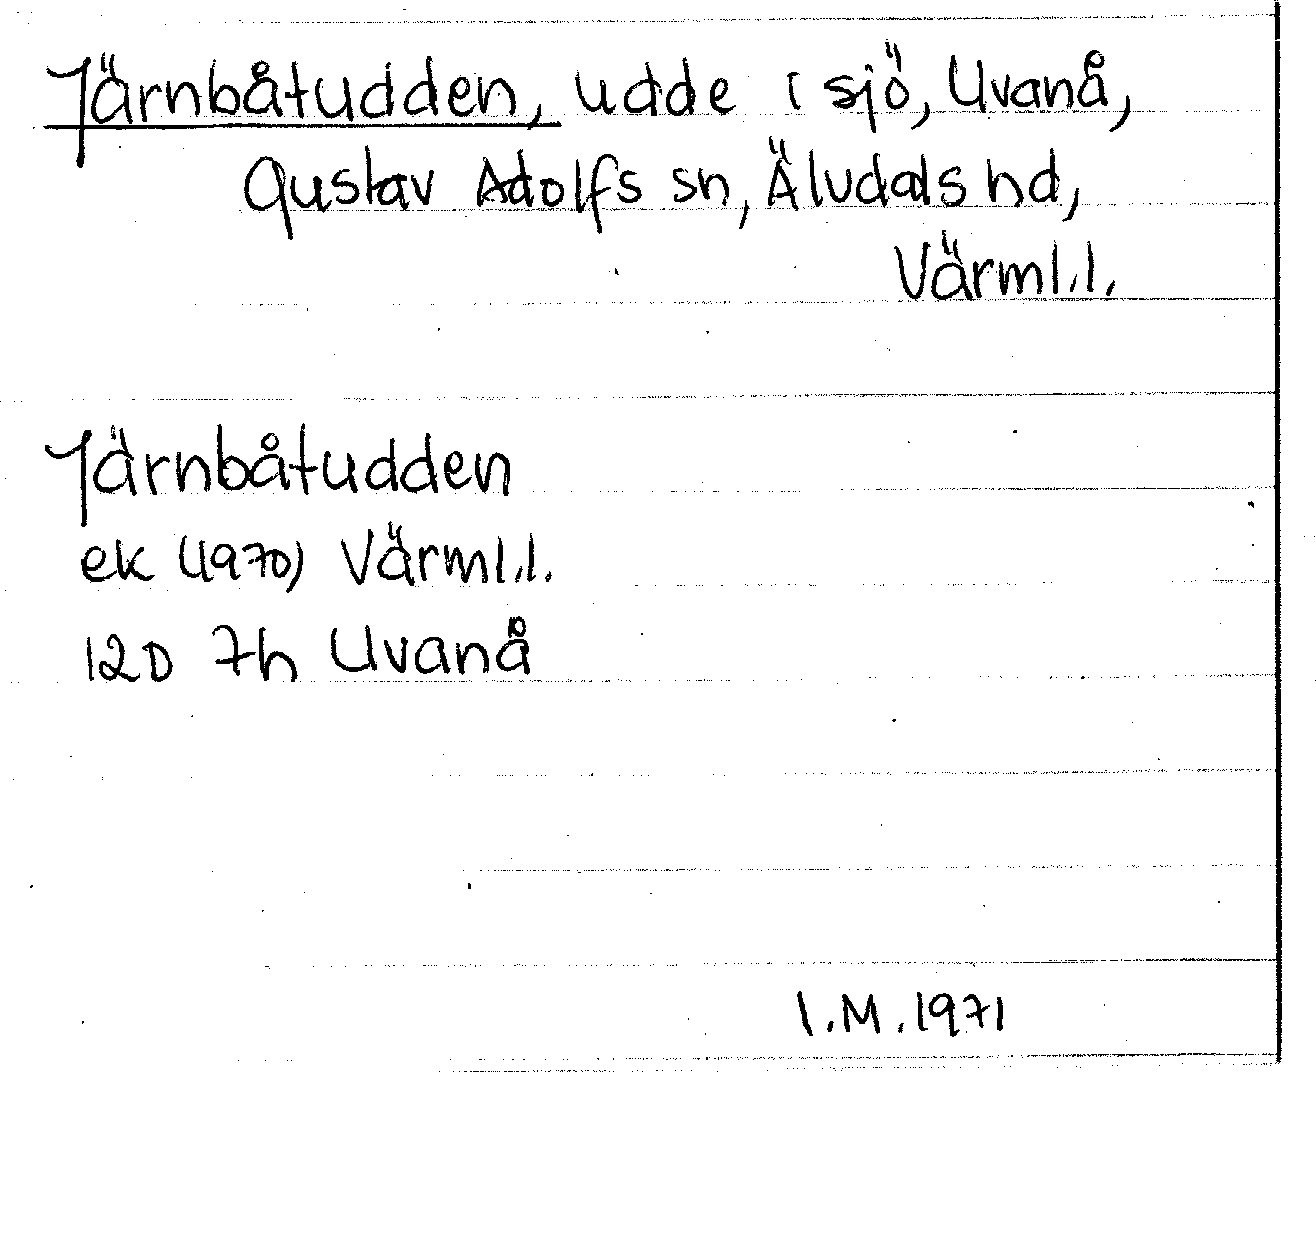 Järnbåtudden, udde i sjö, Uvanå,
Gustav Adolfs sn, Älvdals hd,
Värml.l.
Järnbåtudden
ek (1970) Värml.l.
12D 7h Uvanå
I.M. 1971